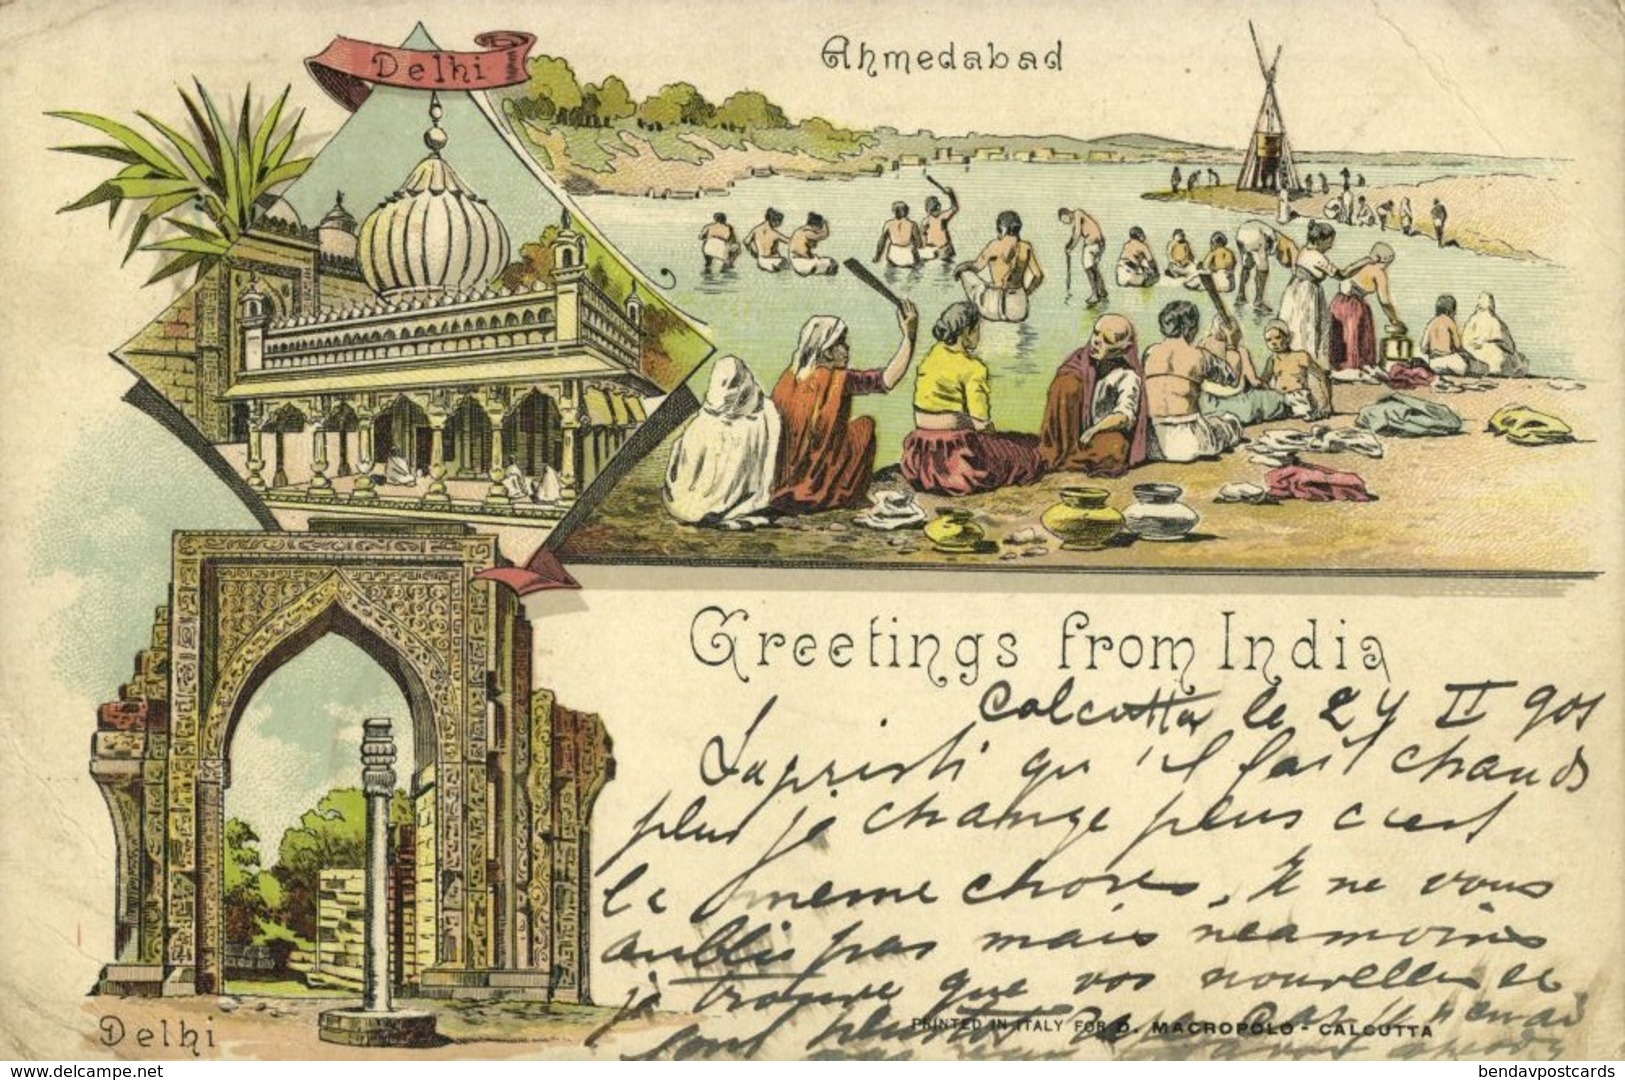 Delhi
Ahmedabad
Greetings from India
Calcutta le 24 II 901
Sapristi qu'il fait chaud
plus je change plus c'est
la meme chose. Je ne vous
oublis pas mais neamoins
je trouve que vos nouvelles se
sont plutot car je n'en ai
PRINTED IN ITALY FOR D. MACROPOLO - CALCUTTA
Delhi
www.delcampe.net
bendavpostcards